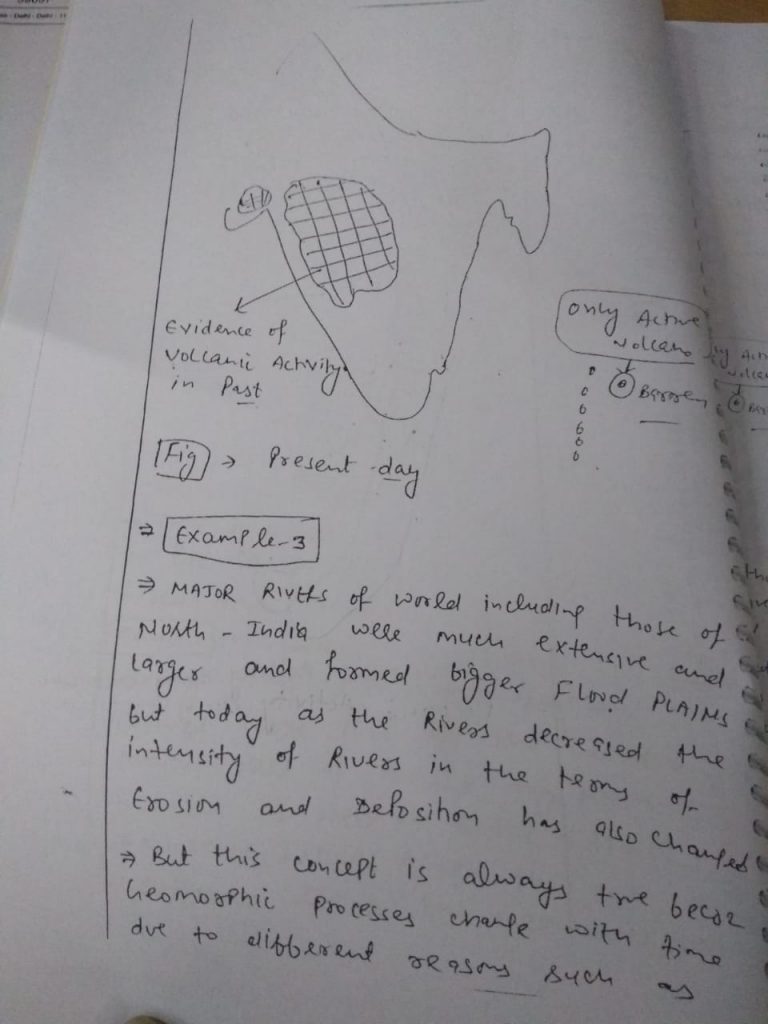 Evidence of
Volcanic Activity
in Past
Only Active
volcano
Barren
Fig → Present day
⇒ Example-3
⇒ MAJOR Rivers of world including those of
North - India were much extensive and
larger and formed bigger Flood PLAINS
but today as the Rivers decreased the
intensity of Rivers in the terms of
Erosion and Deposition has also changed
⇒ But this concept is always true becoz
Geomorphic Processes change with time
due to different reasons such as